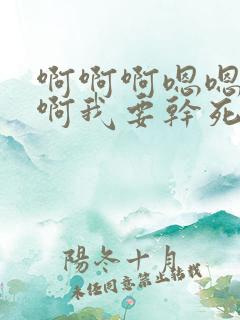 啊啊啊嗯嗯
啊我要幹死
陽冬十月
未經同意禁止轉載